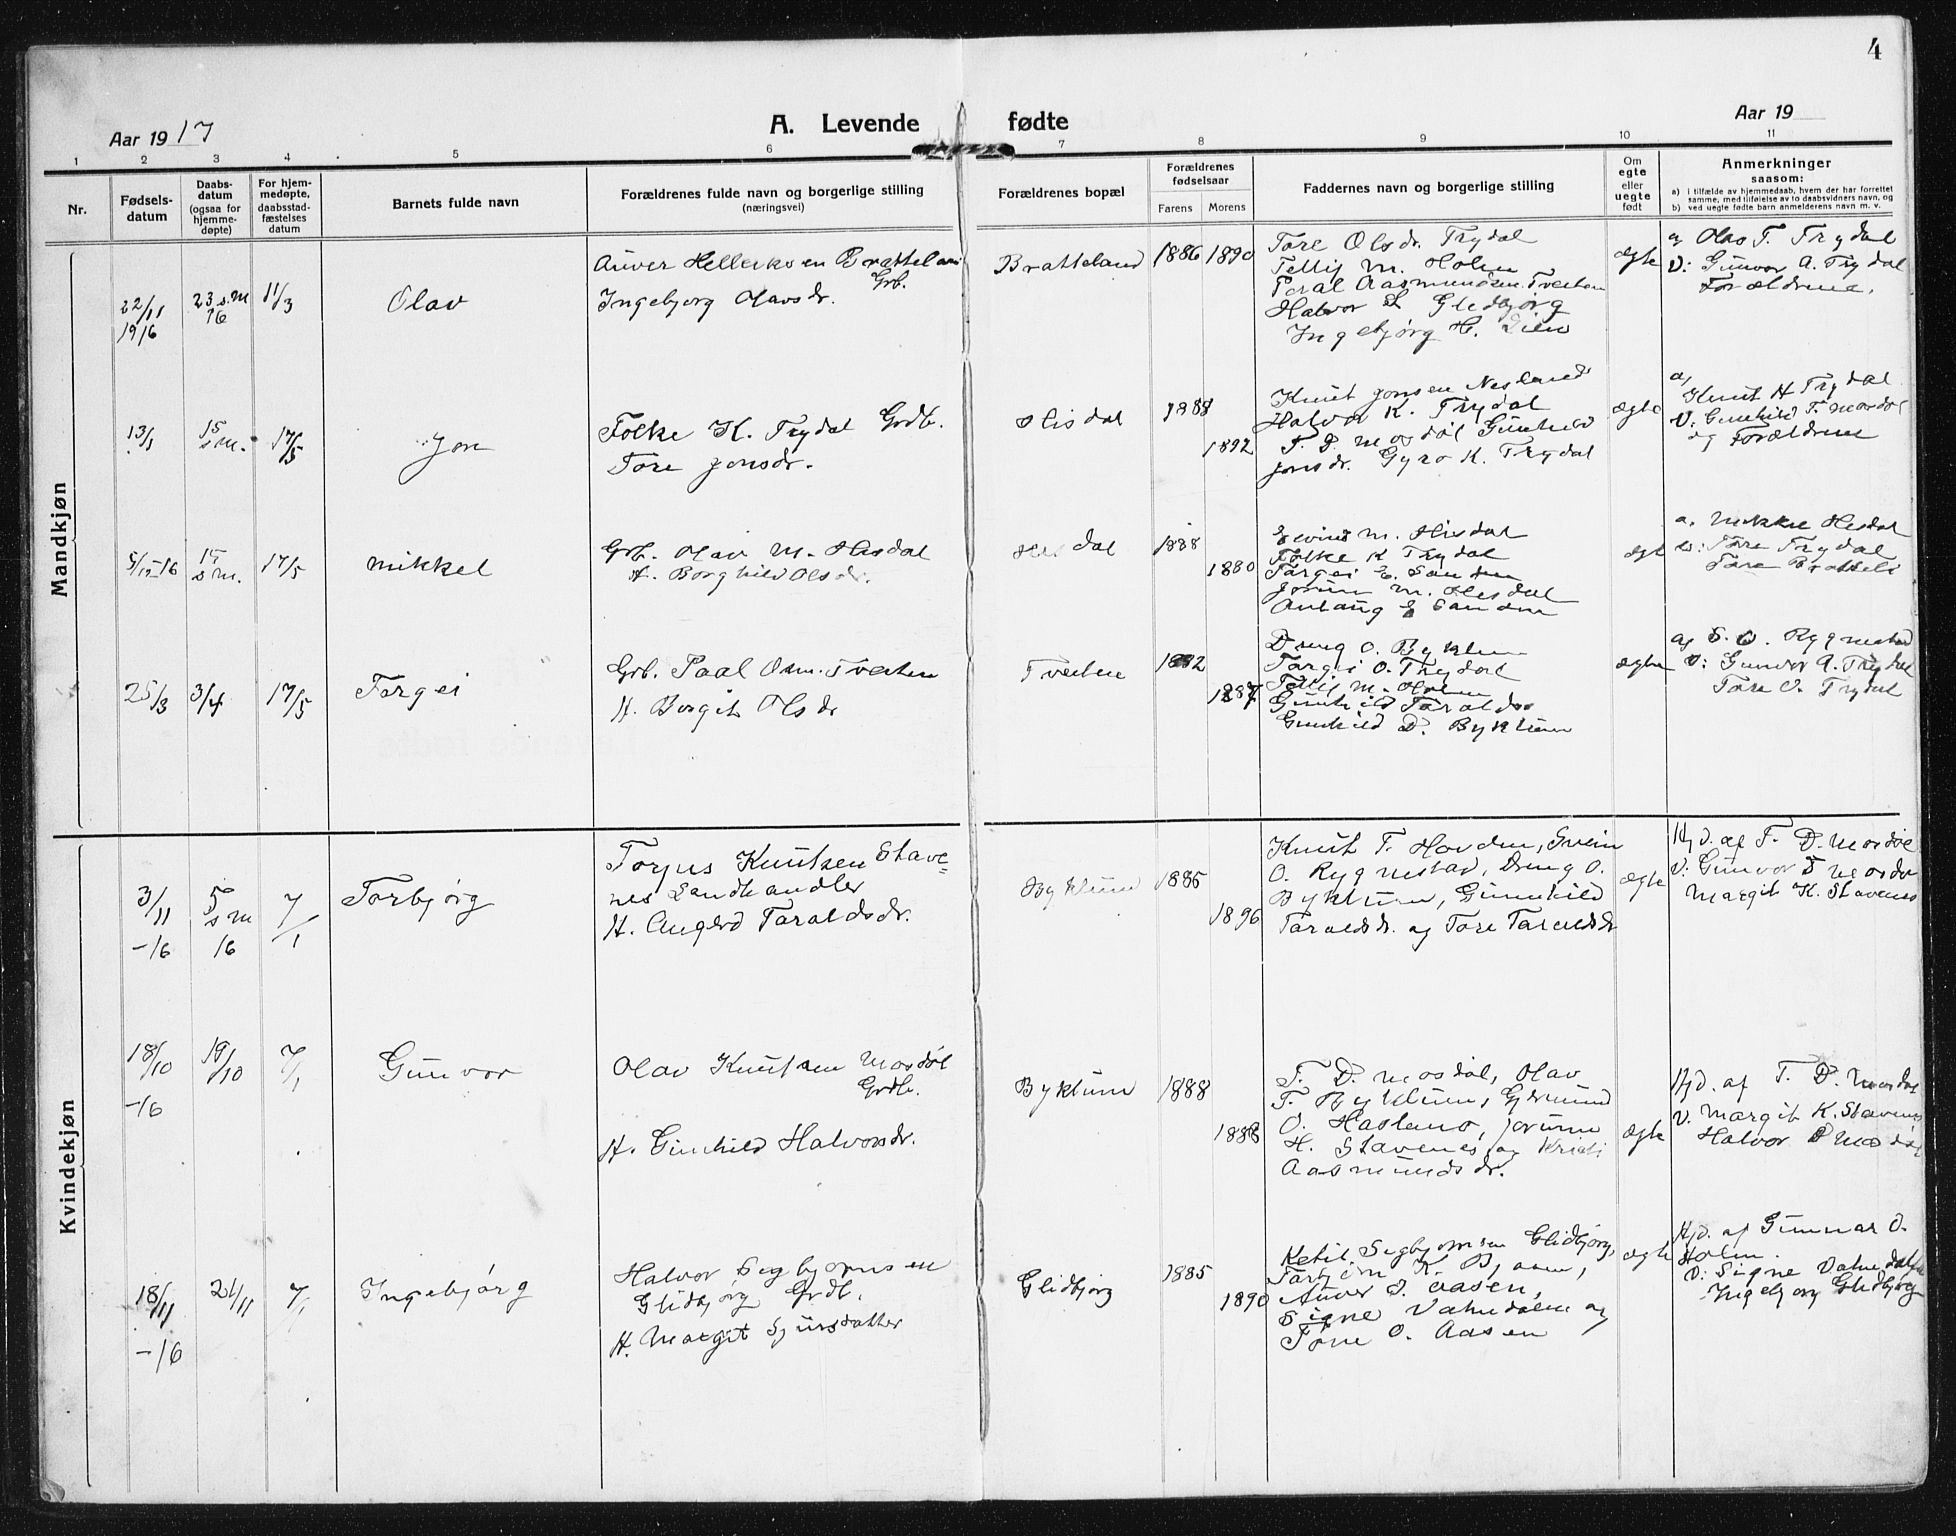 4
Aar 1917
A. Levende fødte
Aar 19
1 2 3 4 5 6 7 8 9 10 11
Nr.
Fødsels-
datum
Daabs-
datum
(ogsaa for
hjemme-
døpte)
For hjem-
medøpte,
daabsstad-
fæstelses
datum
Barnets fulde navn
Forældrenes fulde navn og borgerlige stilling
(næringsvei)
Forældrenes bopæl
Forældrenes
fødselsaar
Farens Morens
Faddernes navn og borgerlige stilling
Om
egte
eller
uegte
født
Anmerkninger
saasom:
a) i tilfælde av hjemmedaab, hvem der har forrettet
samme, med tilføielse av to daabsvidners navn, og
b) ved uegte fødte barn anmelderens navn m. v.
Mandkjøn
22/11
1916
23 s.m
16
11/3
Olav
Anver Helleiksen Bratteland
Grb.
Ingebjorg Olavsdr.
Bratteland
1886 1890
Tore Olsdr. Trydal
Tellij M. Holen
Aasmundsen Tveiten
Halvor Glidbjørg
Ingebjørg H.
ægte
a, Olav T. Trydal
V: Gunvor A. Trydal
Forældrene.
13/1
15
s m.
17/5
Jon
Folke K. Trydal Grdb.
Tore Jonsdr.
Hisdal
1888
1892
Knut Jonsen Nesland
Halvor K. Trydal
T. D. Mosdøl Gunhild
Jonsdr. Gyro K. Trydal
ægte
a,
Knut H Trydal
V: Gunhild T. Mosdøl
og Forældrene
5/12-16
15
s m.
17/5
Mikkel
Grb. Olav M. Hisdal
H. Borghild Olsdr.
Hisdal
1888
1880
Eivind M. Hisdal
Folke K Trydal
Targei E. Sanden
Jorun M. Hisdal
Anlaug E Sanden
ægte
a, Mikkel Hisdal
V: Tore Trydal
Tore Bratteli
25/3
3/4
17/5
Torgei
Grb. Paal Osm. Tveiten
H. Borgit Olsdr
Tveiten
1882
1887
Dreng O. Byklum
Targei O. Trydal
Tellij M. Holen
Gunhild Taraldsdr
Gunhild D. Byklum
ægte
a, S. O. Rygnestad
V: Gunvor A. Trydal
Tore O. Trydal
Kvindekjøn
3/11
-16
5
s m
16
7/1
Torbjørg
Torjus Knutsen Stave-
nes Landhandler
H. Angerd Taraldsdr.
Byklum
1885
1896
Knut T. Hovden, Svein
O. Rygnestad, Dreng O.
Byklum, Gunhild
Taraldsdr. og Tore Taraldsdr
ægte
Hjd. af T. D. Mosdøl
V: Gunvor D Mosdøl
Margit K. Stavenes
18/10
-16
19/10
7/1
Gunvor
Olav Knutsen Mosdøl
Grdb.
H. Gunhild Halvorsdr.
Byklum
1888
1888
T. D. Mosdøl, Olav
T. Byklum, Gjermund
O. Hasland, Jorunn
H. Stavenes og Kristi
Aasmundsdr.
ægte
Hjd. af T. D. Mosdøl
V. Margit K. Stavenes
Halvor D Mosdøl
18/11
-16
21/11
7/1
Ingebjørg
Halvor Sigbjørnsen
Glidbjørg Grdb.
H. Margit Sjursdatter
Glidbjørg
1885
1890
Ketil Sigbjørnsen Glidbjørg,
Torbjørn K. Bjaaen,
Anver S. Aasen,
Signe Vatnedalen og
Tone O. Aasen
ægte
Hjd. af Gunnar O.
Holen.
V: Signe Vatnedalen
Ingebjorg Glidbjørg